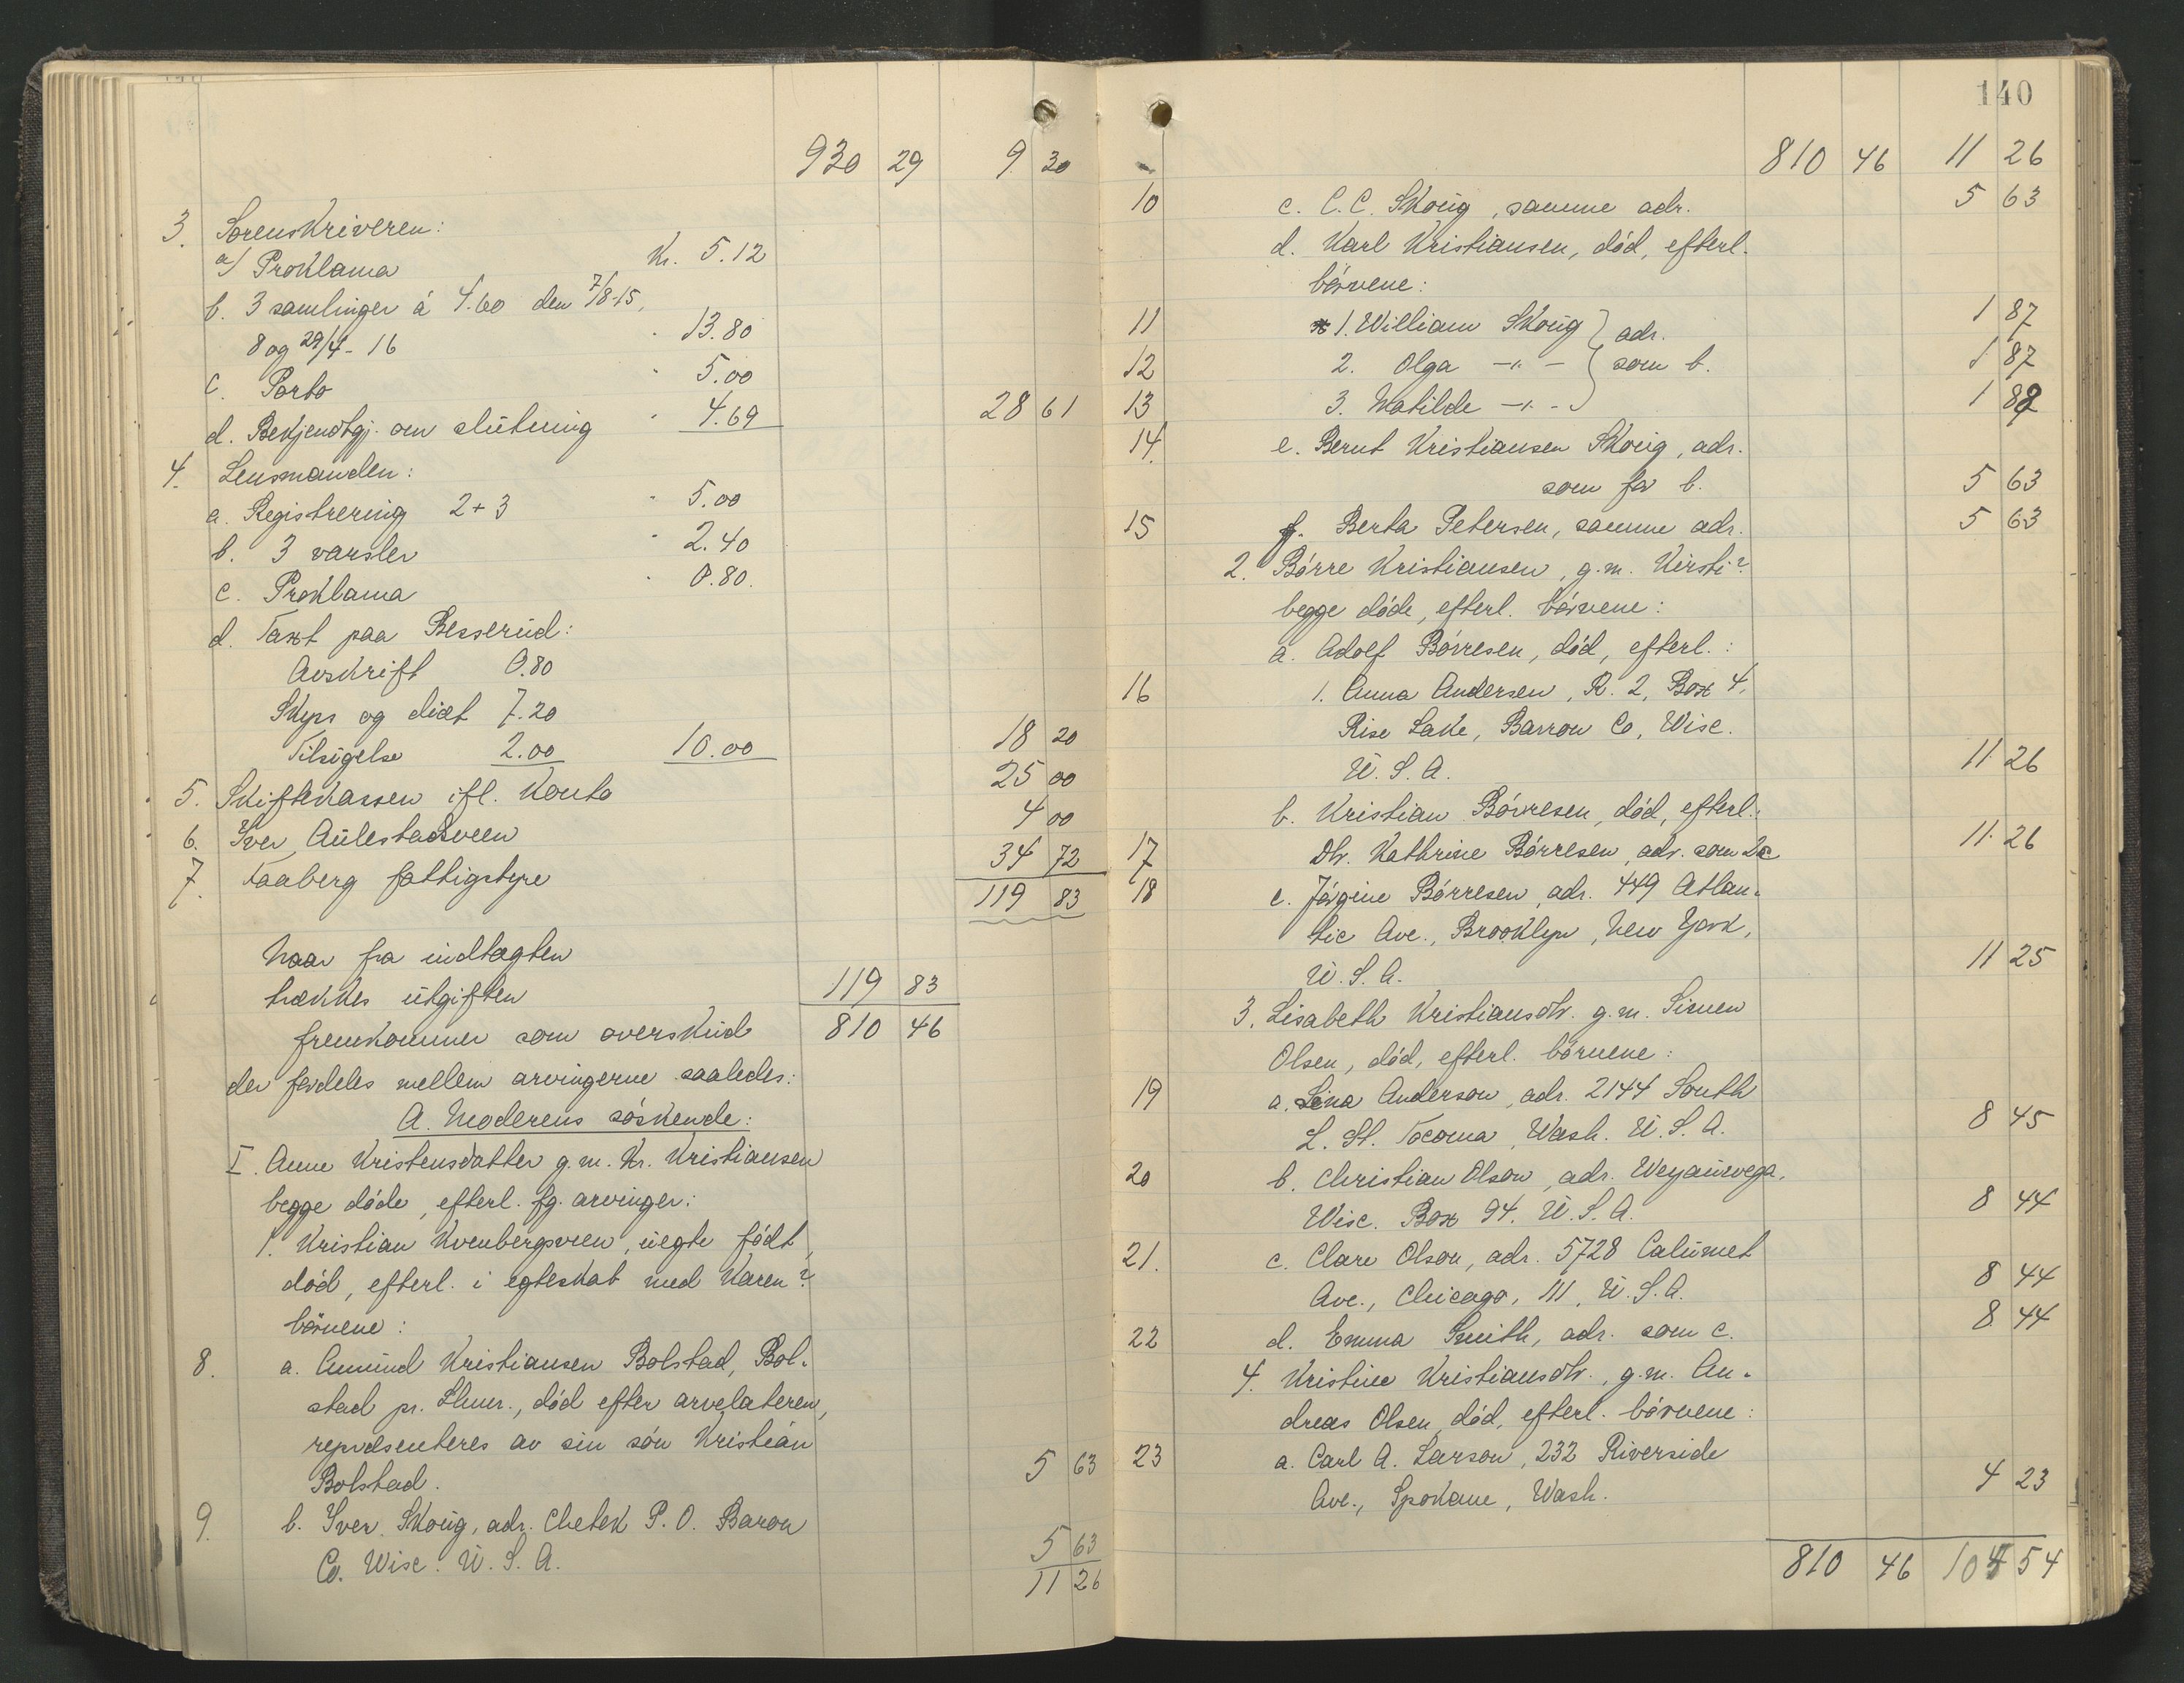 930 29 9 30
3. Sorenskriveren:
a/ Proklama Kr. 5.12
b. 3 samlinger á 4.60 den 7/8-15,
8 og 29/4-16 " 13.80
c. Porto " 5.00
d. Bekjendtgj. om slutning " 4.69 28 61
4. Lensmanden:
a. Registrering 2+3 " 5.00
b. 3 varsler " 2.40
c. Proklama " 0.80.
d. Taxt paa Besserud:
Avskrift 0.80
Skyss og diæt 7.20
Tilsigelse 2.00 10.00 18 20
5. Skiftekassen ifl. Konto 25 00
6. Iver Aulestadsveen 4 00
7. Faaberg fattigstyre 34 72
119 83
Naar fra indtægten
trækkes utgiften 119 83
fremkommer som overskud 810 46
der fordeles mellem arvingerne saaledes:
A. Moderens søskende:
I. Anne Kristensdatter g.m. Kr. Kristiansen
begge døde, efterl. fg. arvinger:
1. Kristian Kvenbergsveen, uegte født,
død, efterl. i egteskab med Karen?
børnene:
8. a. Amund Kristiansen Bolstad, Bol-
stad pr. Lhmr., død efter arveladeren,
repræsenteres av sin søn Kristian
Bolstad. 5 63
9. b. Iver Skoug, adr. Chetek P.O. Baron
Co. Wisc. U.S.A. 5 63
11 26
140
810 46 11 26
10 c. C.C. Skoug, samme adr. 5 63
d. Karl Kristiansen, død, efterl.
børnene:
11 1. William Skoug } adr. 1 87
12 2. Olga -"- } som b. 1 87
13 3. Matilde -"- 1 89
14. e. Bernt Kristiansen Skoug, adr.
som for b. 5 63
15 f. Berta Petersen, samme adr. 5 63
2. Børre Kristiansen, g.m. Kirsti?
begge døde, efterl. børnene:
a. Adolf Børresen, død, efterl.:
16 1. Anna Andersen, R. 2, Box 4,
Rise Lake, Barron Co, Wisc.
U.S.A. 11 26
b. Kristian Børresen, død, efterl.
17 Dtr. Kathrine Børresen, adr. som 2c 11 26
18 c. Jørgine Børresen, adr. 449 Atlan-
tic Ave., Brooklyn, New York,
U.S.A. 11 25
3. Lisabeth Kristiansdtr. g.m. Simen
Olsen, død, efterl. børnene:
19 a. Lena Anderson, adr. 2144 South
L. St. Tacoma, Wash. U.S.A. 8 45
20 b. Christian Olson, adr. Weyauwega,
Wisc. Box 94. U.S.A. 8 44
21. c. Clare Olson, adr. 5728 Calumet
Ave., Chicago, Ill, U.S.A. 8 44
22 d. Emma Smith, adr. som c. 8 44
4. Kristine Kristiansdtr., g.m. An-
dreas Olsen, død, efterl. børnene:
23 a. Carl A. Larson, 232 Riverside
Ave., Spokane, Wash. 4 23
810 46 104 54